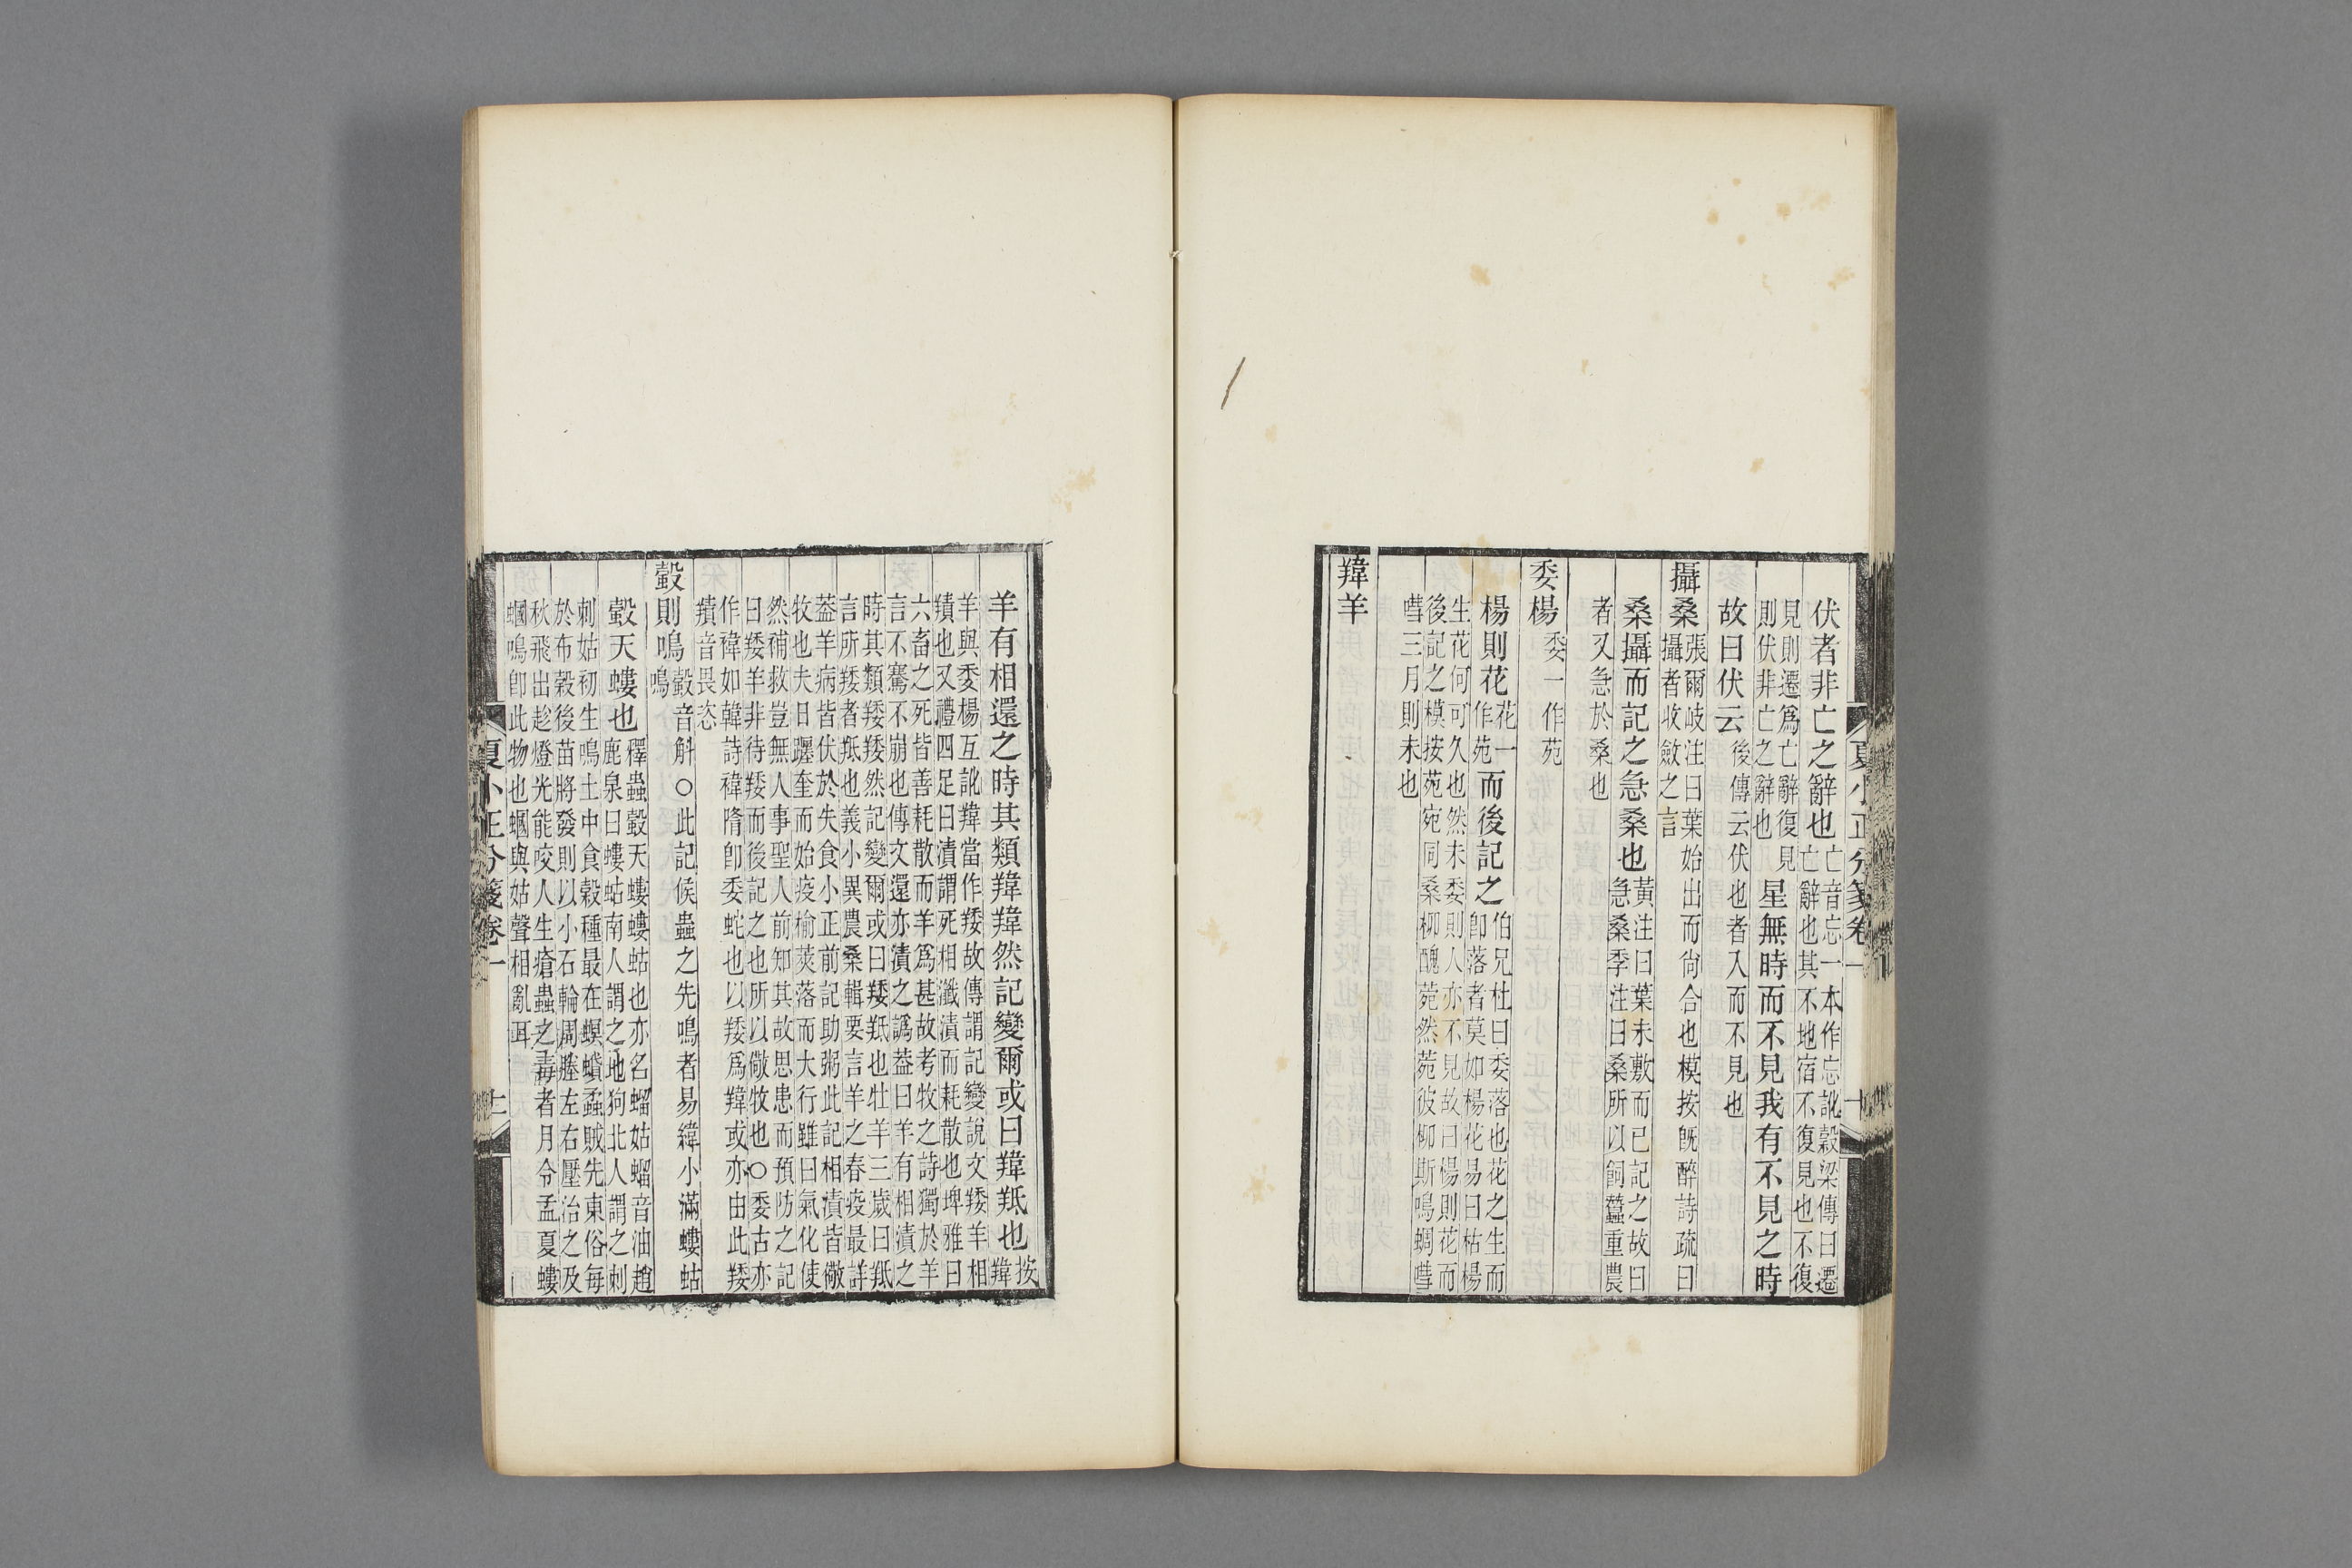 夏小正分箋卷一
十
伏者非亡之辭也亡音忘一本作忘訛穀梁傳曰遷
亡辭也其不地宿不復見也不復
見則遷爲亡辭復見
則伏非亡之辭也
星無時而不見我有不見之時
故曰伏云後傳云伏也者入而不見也
攝桑張爾岐注曰葉始出而尙合也模按旣醉詩疏曰
攝者收斂之言
桑攝而記之急桑也黃注曰葉未敷而已記之故曰
急桑季注曰桑所以飼蠶重農
者又急於桑也
委楊委一作苑
楊則花花一
作苑
而後記之伯兄杜曰委落也花之生而
卽落者莫如楊花易曰枯楊
生花何可久也然未委則人亦不見故曰楊則花而
後記之模按苑宛同桑柳醜菀然菀彼柳斯鳴蜩嘒
嘒三月則未也
羵羊
羊有相還之時其類羵羵然記變爾或曰羵羝也按
羊與委楊互訛羵當作羠故傳謂記變說文羠羊相
羵也又禮四足曰漬謂死相瀸漬而耗散也埤雅曰
六畜之死皆善耗散而羊爲甚故考牧之詩獨於羊
言不騫不崩也傳文還亦漬之譌葢曰羊有相漬之
時其類羠羠然記變爾或曰羠羝也牡羊三歲曰羝
言所羠者羝也義小異農桑輯要言羊之春疫最詳
葢羊病皆伏於失食小正前記助粥此記相漬皆儆
牧也夫日躔奎而始疫榆莢落而大行雖曰氣化使
然補救豈無人事聖人前知其故思患而預防之記
曰羠羊非待羠而後記之也所以儆牧也○委古亦
作褘如韓詩褘隋卽委蛇也以羠爲羵或亦由此羠
羵音畏恣
螜則鳴螜音斛○此記候蟲之先鳴者易緯小滿螻蛄
鳴
螜天螻也釋蟲螜天螻螻蛄也亦名蝒姑蝒音油趙
鹿泉曰螻蛄南人謂之地狗北人謂之刺
刺姑初生鳴土中食穀種最在螟螣蟊賊先東俗每
於布穀後苗將發則以小石輪周塍左右壓治之及
秋飛出趁燈光能咬人生瘡蟲之毒者月令孟夏螻
蟈鳴卽此物也蟈與姑聲相亂耳
夏小正分箋卷一
十一